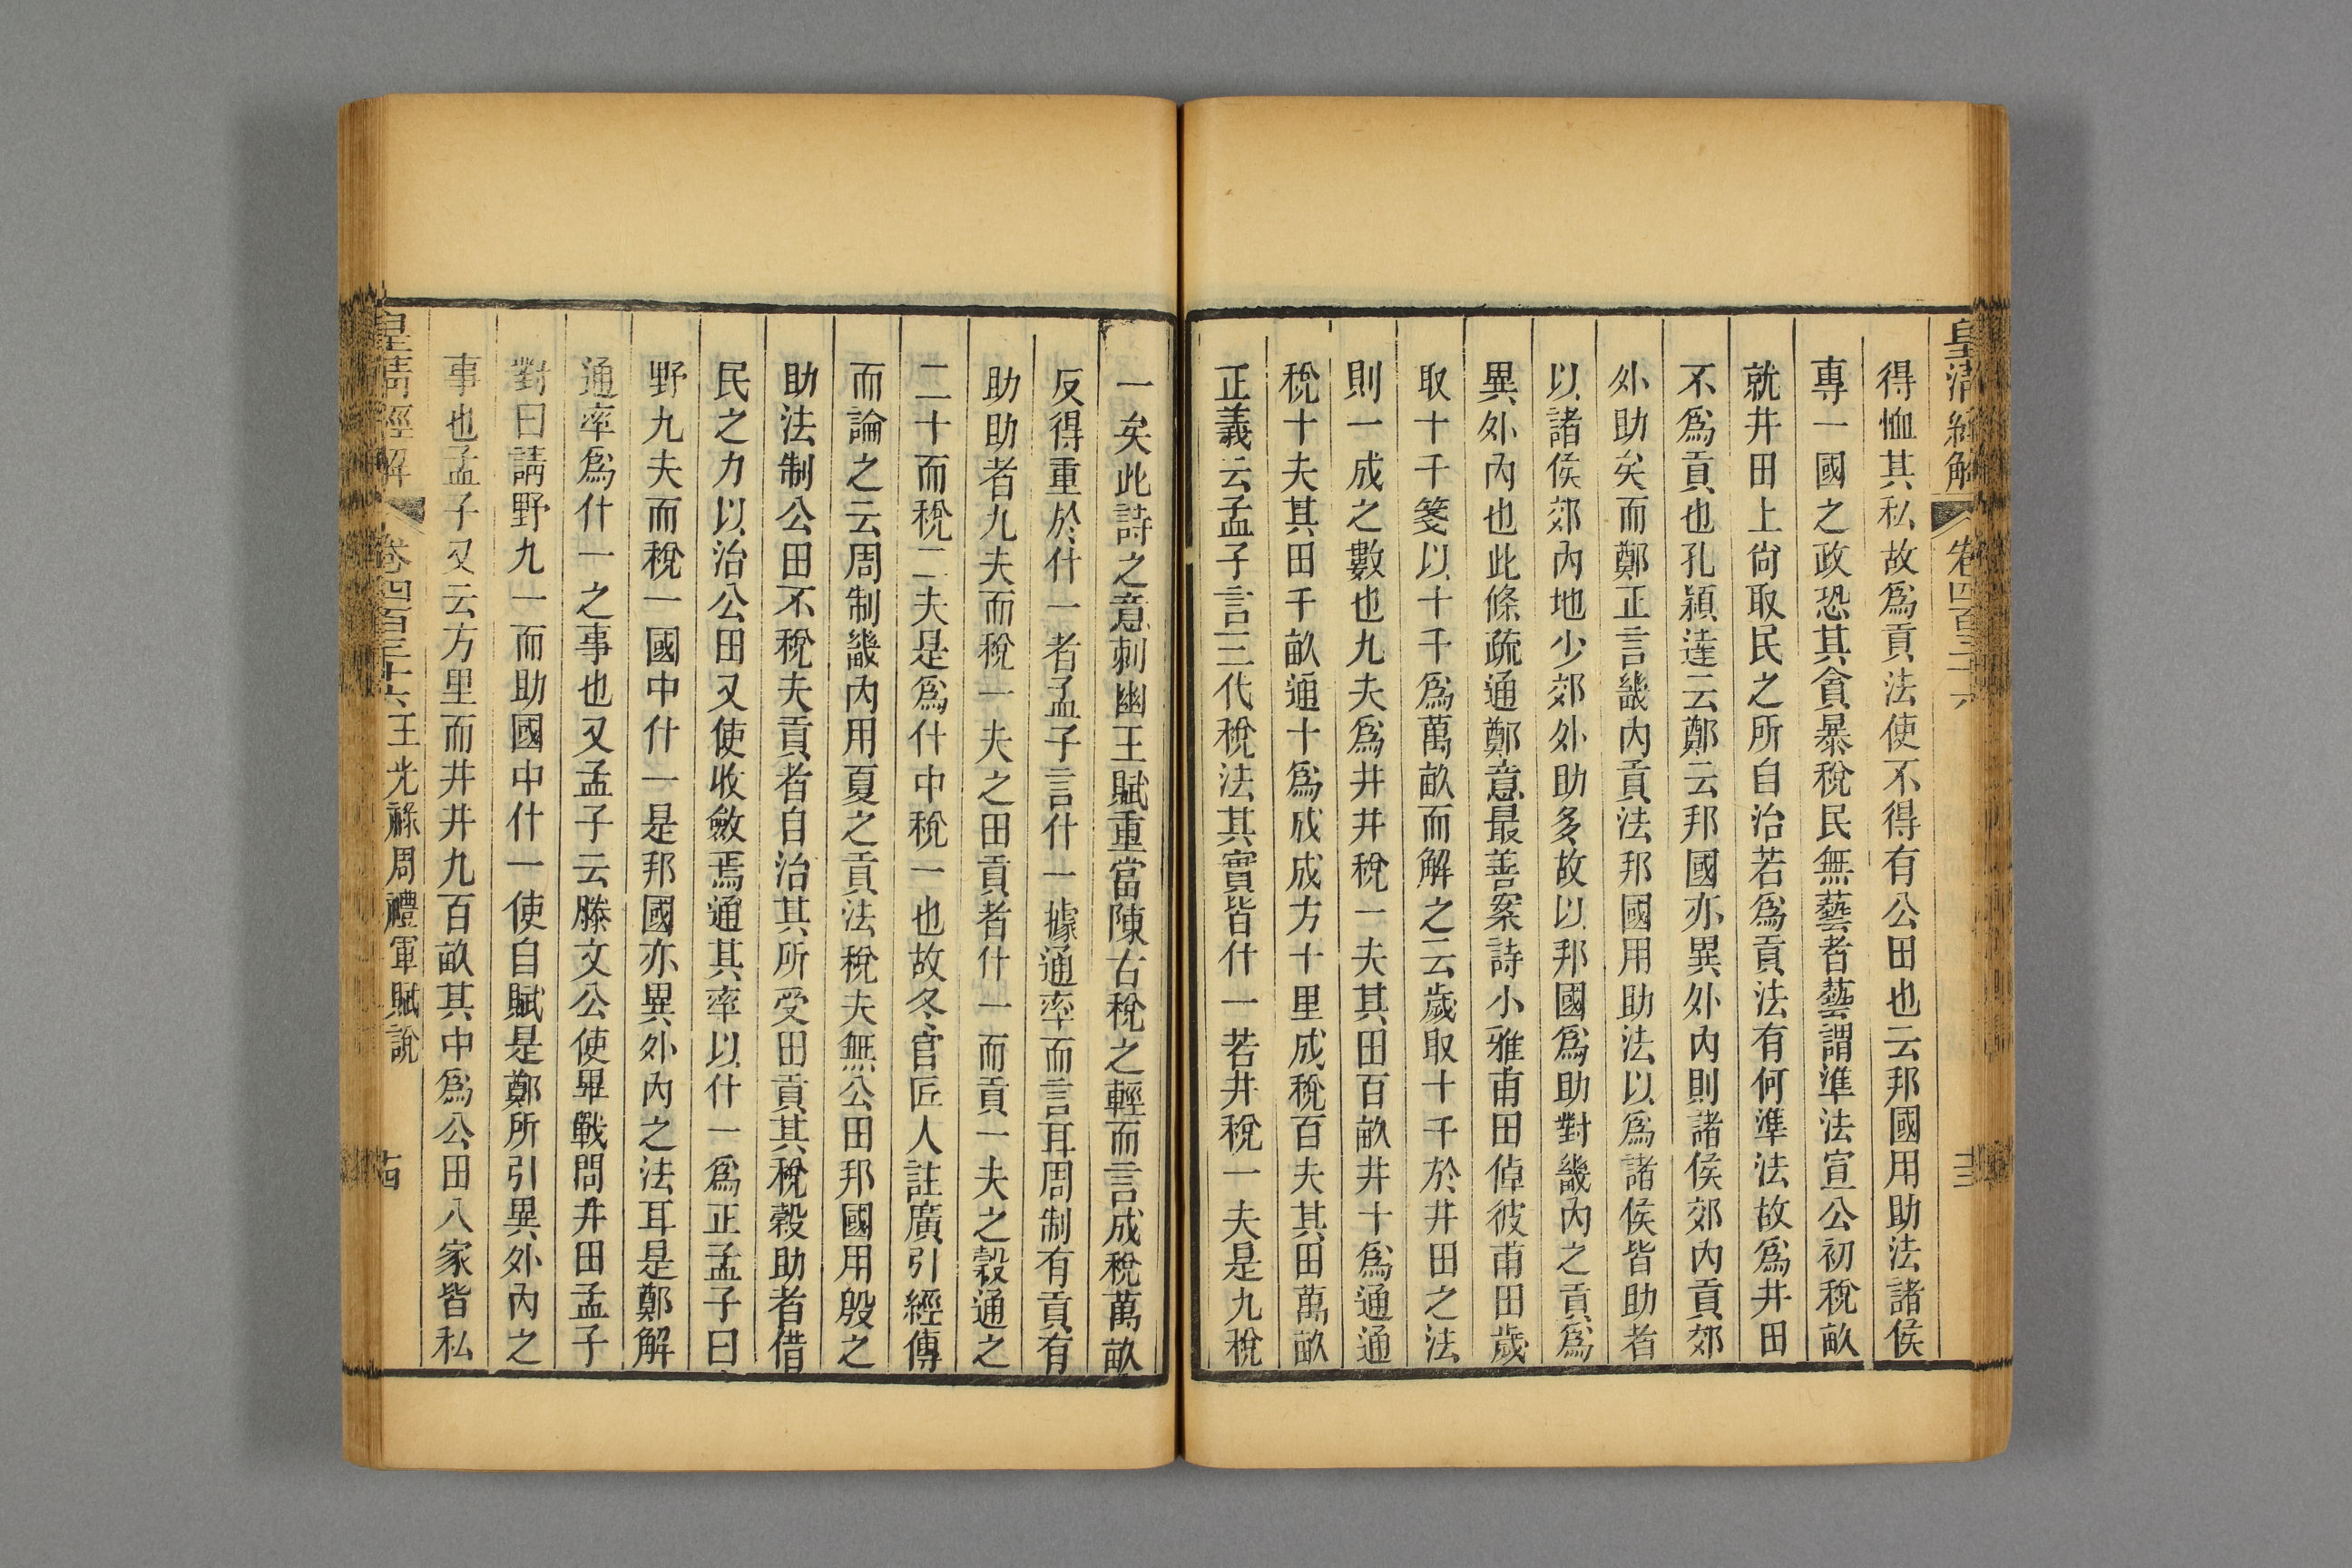 皇清經解
卷四百三十六
十三
得恤其私故爲貢法使不得有公田也云邦國用助法諸侯
專一國之政恐其貪暴稅民無藝者藝謂準法宣公初稅畝
就井田上尙取民之所自治若爲貢法有何準法故爲井田
不爲貢也孔穎達云鄭云邦國亦異外內則諸侯郊內貢郊
外助矣而鄭正言畿內貢法邦國用助法以爲諸侯皆助者
以諸侯郊內地少郊外助多故以邦國爲助對畿內之貢爲
異外內也此條疏通鄭意最善案詩小雅甫田倬彼甫田歲
取十千箋以十千爲萬畝而解之云歲取十千於井田之法
則一成之數也九夫爲井井稅一夫其田百畝井十爲通通
稅十夫其田千畝通十爲成成方十里成稅百夫其田萬畝
正義云孟子言三代稅法其實皆什一若井稅一夫是九稅
一矣此詩之意刺幽王賦重當陳古稅之輕而言成稅萬畝
反得重於什一者孟子言什一據通率而言耳周制有貢有
助助者九夫而稅一夫之田貢者什一而貢一夫之穀通之
二十而稅二夫是爲什中稅一也故冬官匠人註廣引經傳
而論之云周制畿內用夏之貢法稅夫無公田邦國用殷之
助法制公田不稅夫貢者自治其所受田貢其稅穀助者借
民之力以治公田又使收斂焉通其率以什一爲正孟子曰
野九夫而稅一國中什一是邦國亦異外內之法耳是鄭解
通率爲什一之事也又孟子云滕文公使畢戰問井田孟子
對曰請野九一而助國中什一使自賦是鄭所引異外內之
事也孟子又云方里而井井九百畝其中爲公田八家皆私
皇清經解
卷四百三十六
王光祿周禮軍賦說
十四